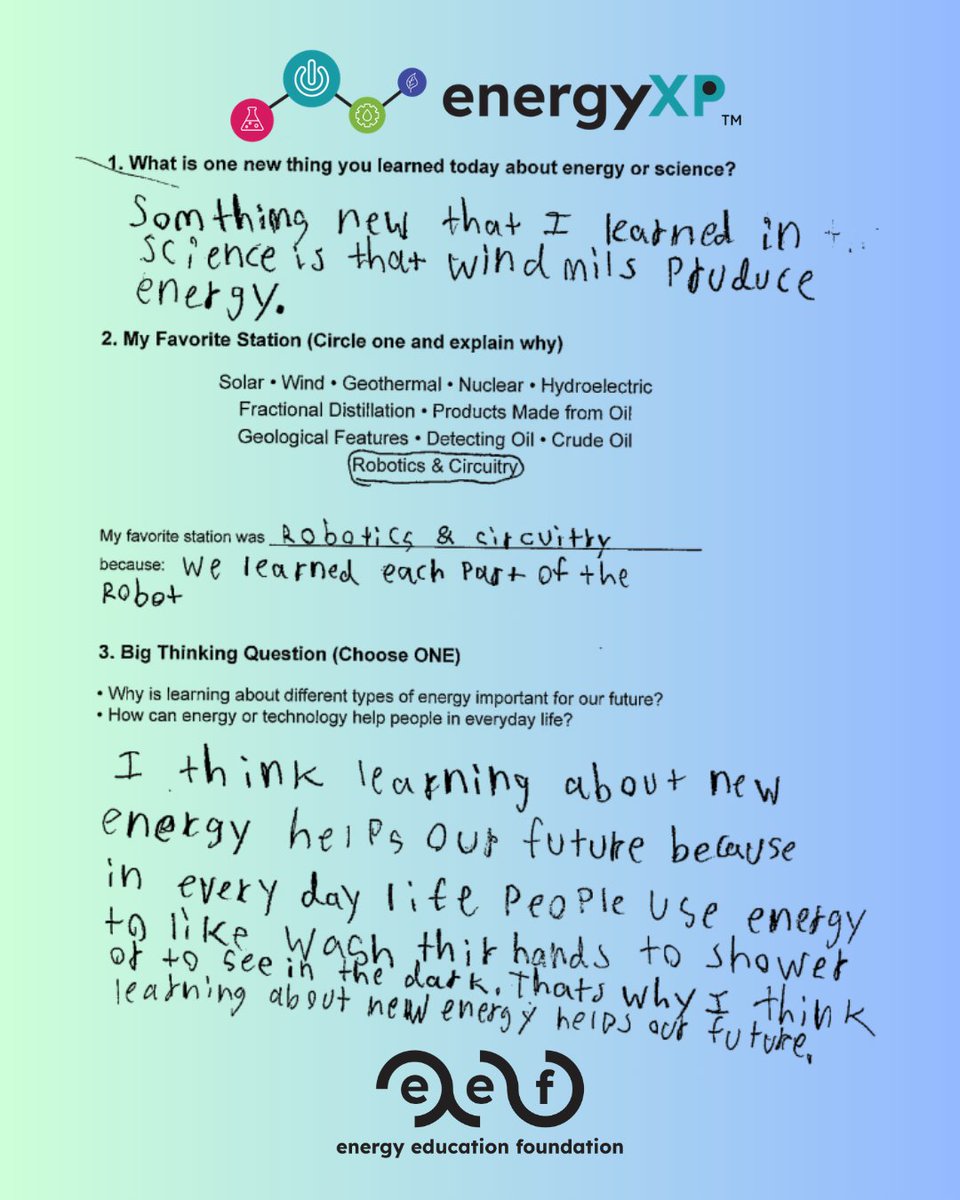 energyXP™
1. What is one new thing you learned today about energy or science?
Somthing new that I learned in
science is that windmils produce
energy.
2. My Favorite Station (Circle one and explain why)
Solar • Wind • Geothermal • Nuclear • Hydroelectric
Fractional Distillation • Products Made from Oil
Geological Features • Detecting Oil • Crude Oil
Robotics & Circuitry
My favorite station was Robotics & circuitry
because: We learned each part of the
Robot
3. Big Thinking Question (Choose ONE)
• Why is learning about different types of energy important for our future?
• How can energy or technology help people in everyday life?
I think learning about new
energy helps our future because
in every day life people use energy
to like wash thir hands to shower
or to see in the dark. Thats why I think
learning about new energy helps our future.
eef
energy education foundation